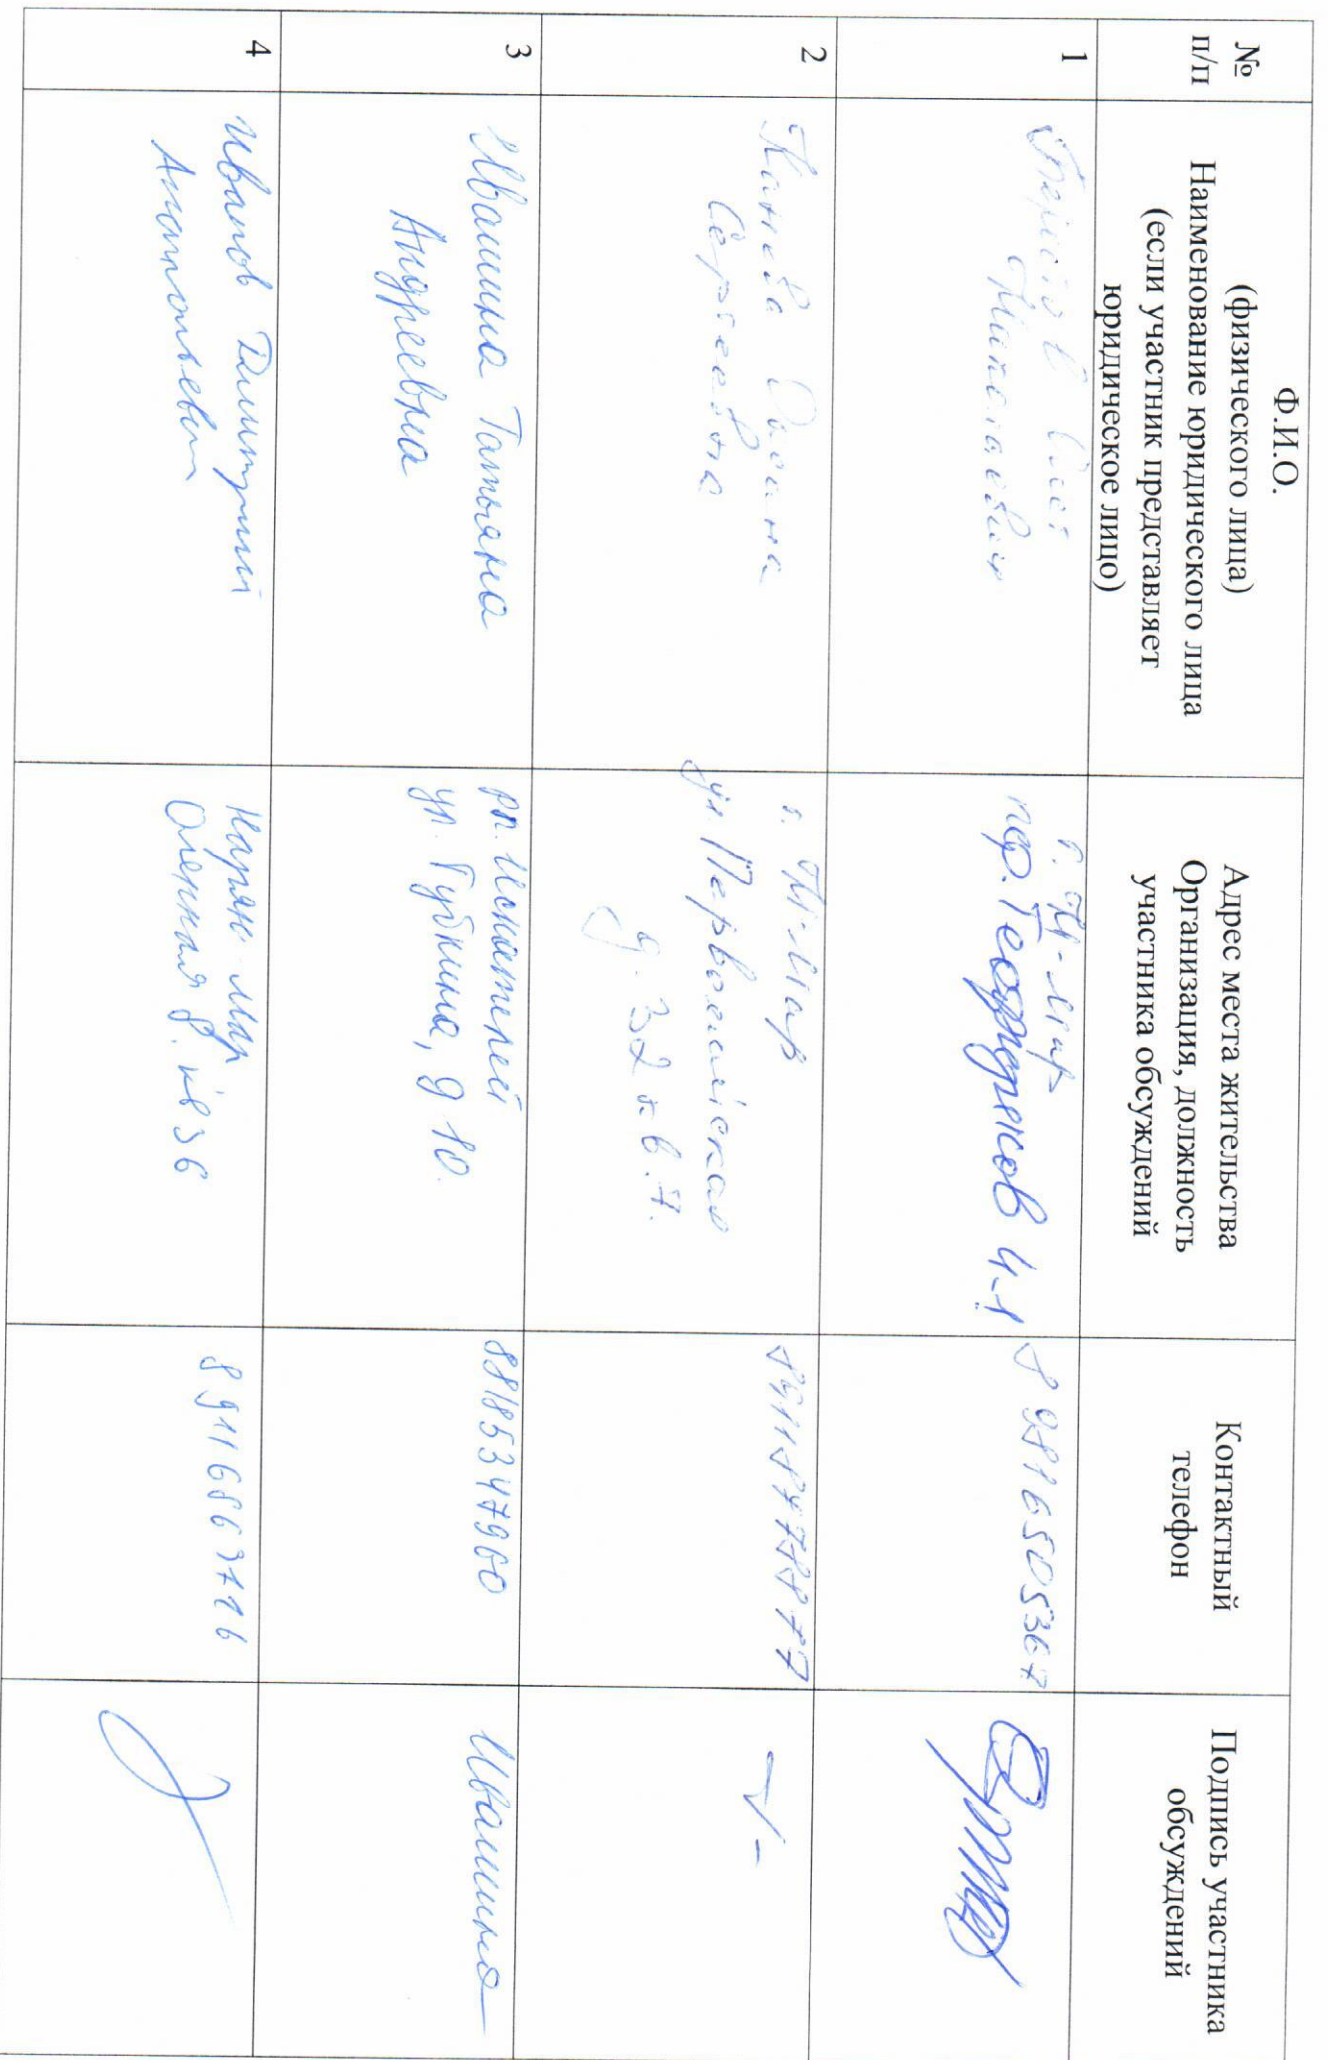 №
п/п
Ф.И.О.
(физического лица)
Наименование юридического лица
(если участник представляет
юридическое лицо)
Адрес места жительства
Организация, должность
участника обсуждений
Контактный
телефон
Подпись участника
обсуждений
1
Николаевич
г. Н-Мар
пер. Геофизиков 4-1
89816505367
2
Канева Оксана
Сергеевна
г. Н-Мар
ул. Первомайская
д. 32 кв. 7.
3
Ивашина Татьяна
Андреевна
рп. Искателей
ул. Губкина, д 10.
88185347960
Ивашина
4
Иванов Дмитрий
Анатольевич
Нарьян-Мар
Оленная 8. кв 36